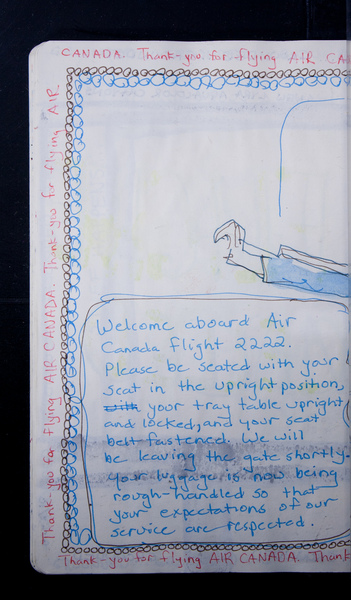 CANADA. Thank-you for flying AIR CA
Thank-you for flying AIR CANADA. Thank-you for flying AIR
Welcome aboard Air
Canada flight 2222.
Please be seated with your
seat in the upright position,
with your tray table upright
and locked, and your seat
belt fastened. We will
be leaving the gate shortly.
Your luggage is now being
rough-handled so that
your expectations of our
service are respected.
Thank-you for flying AIR CANADA. Thank